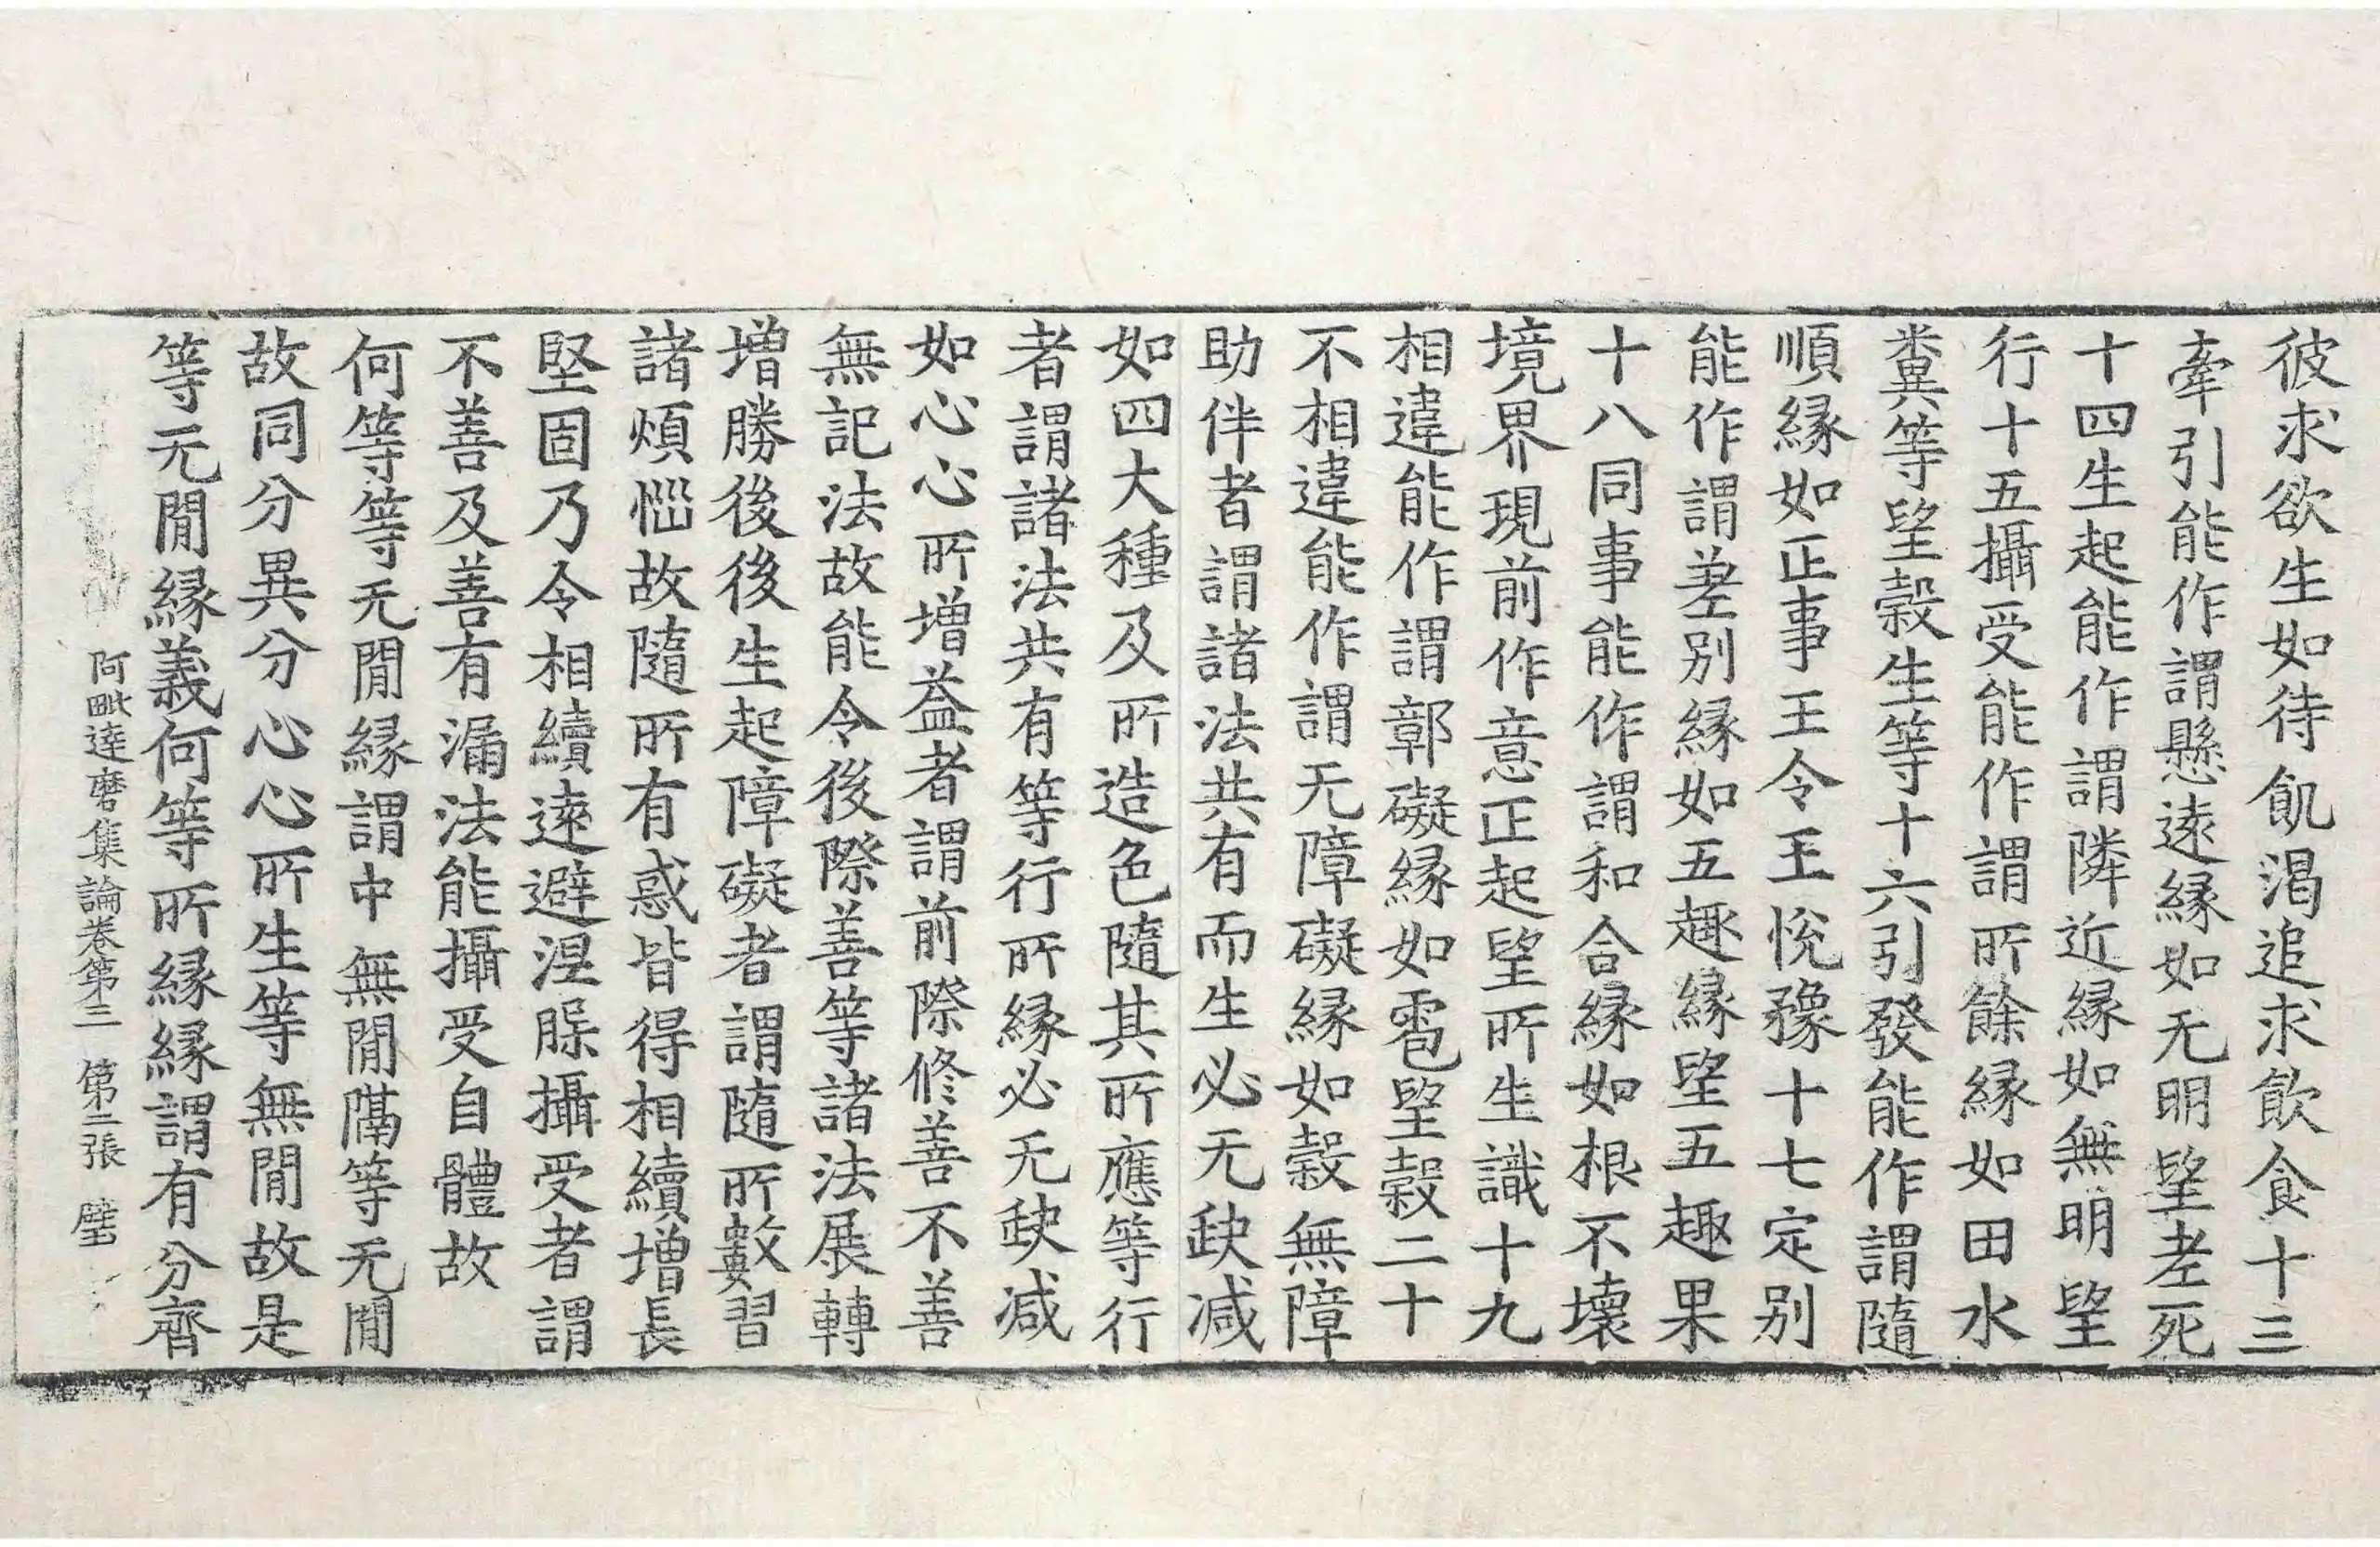 彼求欲生如待飢渴追求飲食十三
牽引能作謂懸逺縁如无明望老死
十四生起能作謂隣近縁如無明望
行十五攝受能作謂所餘縁如田水
糞等望糓生等十六引發能作謂隨
順縁如正事王令王悅豫十七定别
能作謂差别縁如五趣縁望五趣果
十八同事能作謂和合縁如根不壞
境界現前作意正起望所生識十九
相違能作謂鄣礙縁如雹望糓二十
不相違能作謂无障礙縁如糓無障
助伴者謂諸法共有而生必无缺减
如四大種及所造色隨其所應等行
者謂諸法共有等行所縁必无缺减
如心心所增益者謂前際修善不善
無記法故能令後際善等諸法展轉
增勝後後生起障礙者謂隨所數習
諸煩惱故隨所有惑皆得相續增長
堅固乃令相續逺避涅槃攝受者謂
不善及善有漏法能攝受自體故
何等等无閒縁謂中無閒隔等无閒
故同分異分心心所生等無閒故是
等无閒縁義何等所縁縁謂有分齊
阿毗達磨集論卷第三 第二張 璧